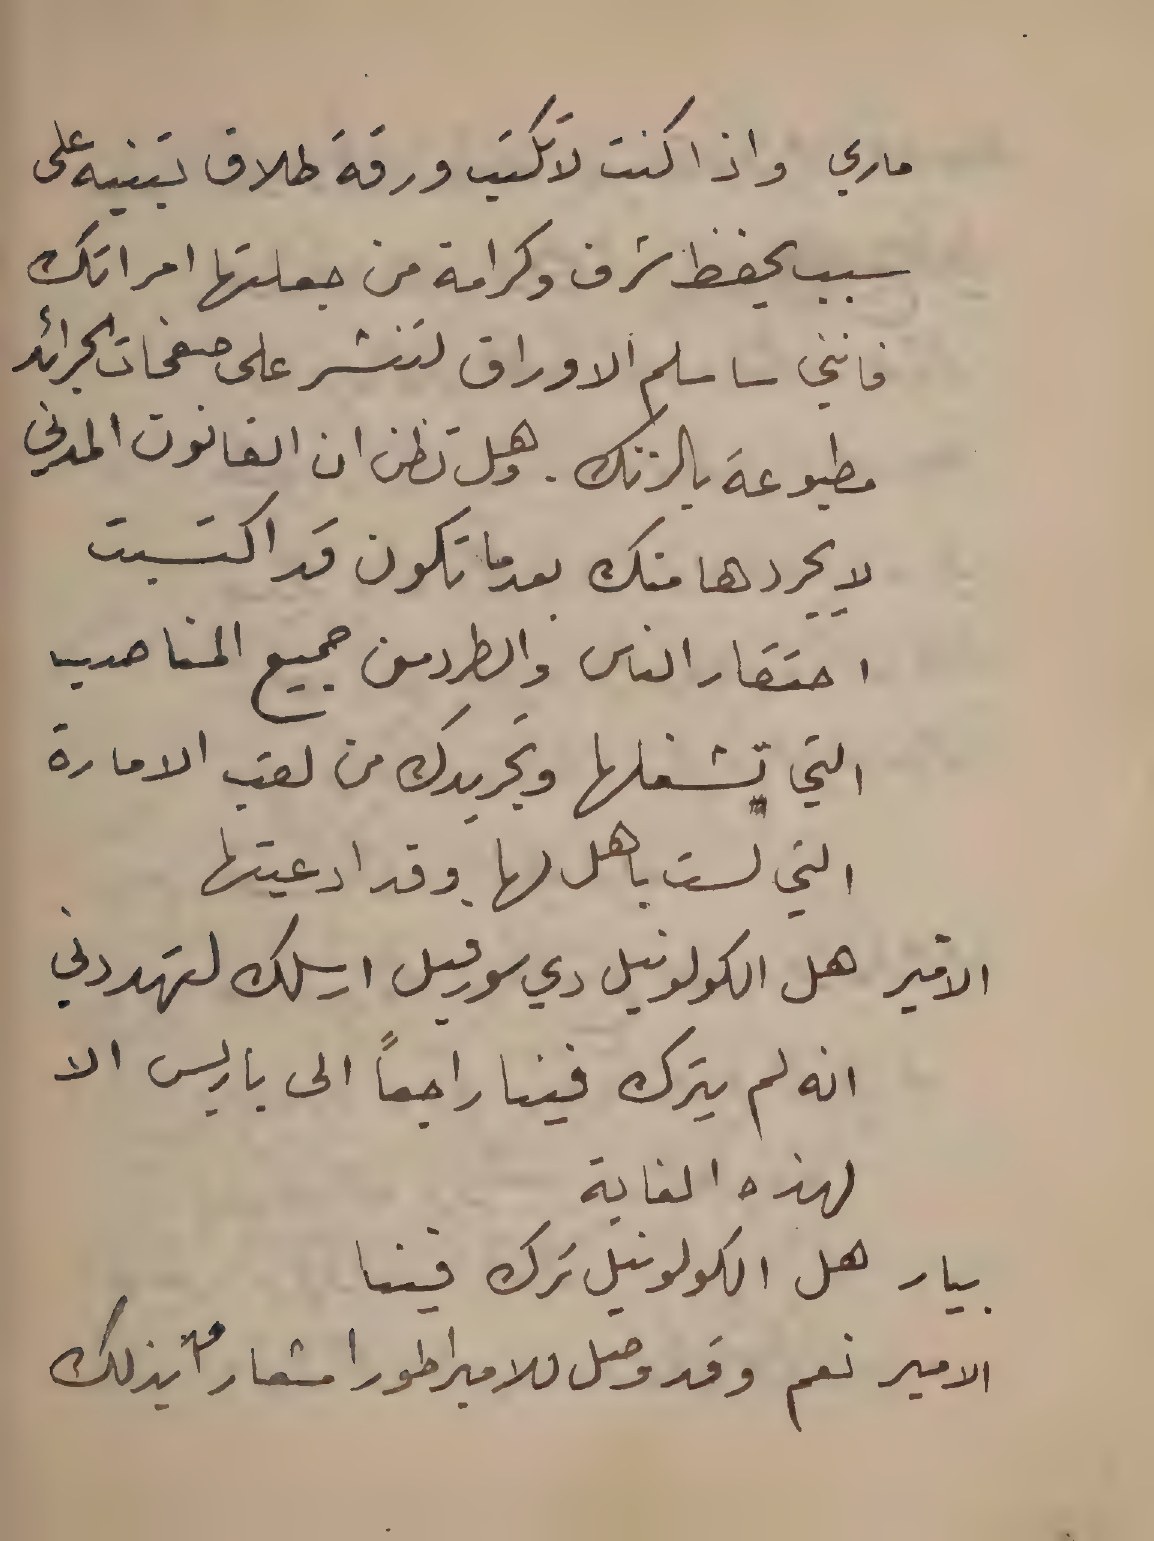 ماري واذا كنت لا تكتب ورقة طلاق تبنيه على
سبب يحفظ شرف وكرامة من جعلتها امراتك
فانني ساسلم الاوراق لتنشر على صفحات الجرائد
مطبوعة بالزنك . وهل تظن ان القانون المدني
لا يجردها منك بعدما تكون قد اكتسبت
احتقار الناس والطرد من جميع المناصب
التي تشغلها وتجريدك من لقب الامارة
التي لست باهل لها وقد ادعيتها
الامير هل الكولونيل دي سورفيل ارسلك لتهددني
انه لم يترك فينا راجعاً الى باريس الا
لهذه الغاية
بيار هل الكولونيل ترك فينا
الامير نعم وقد وصل للامبراطور اشعار بذلك